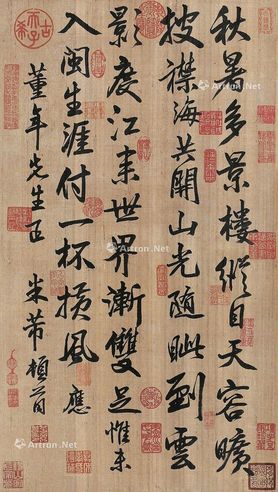 秋暑多景樓縱目天容曠
披襟海共開山光隨眦到雲
影度江来世界漸雙足惟未
入閩生涯付一杯損風應
董年先生正 米芾頓首
古希天子
Artron.Net
Artron.Net
Artron.Net
Artron.Net